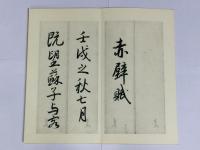 赤壁賦
壬戌之秋七月
既望蘇子与客